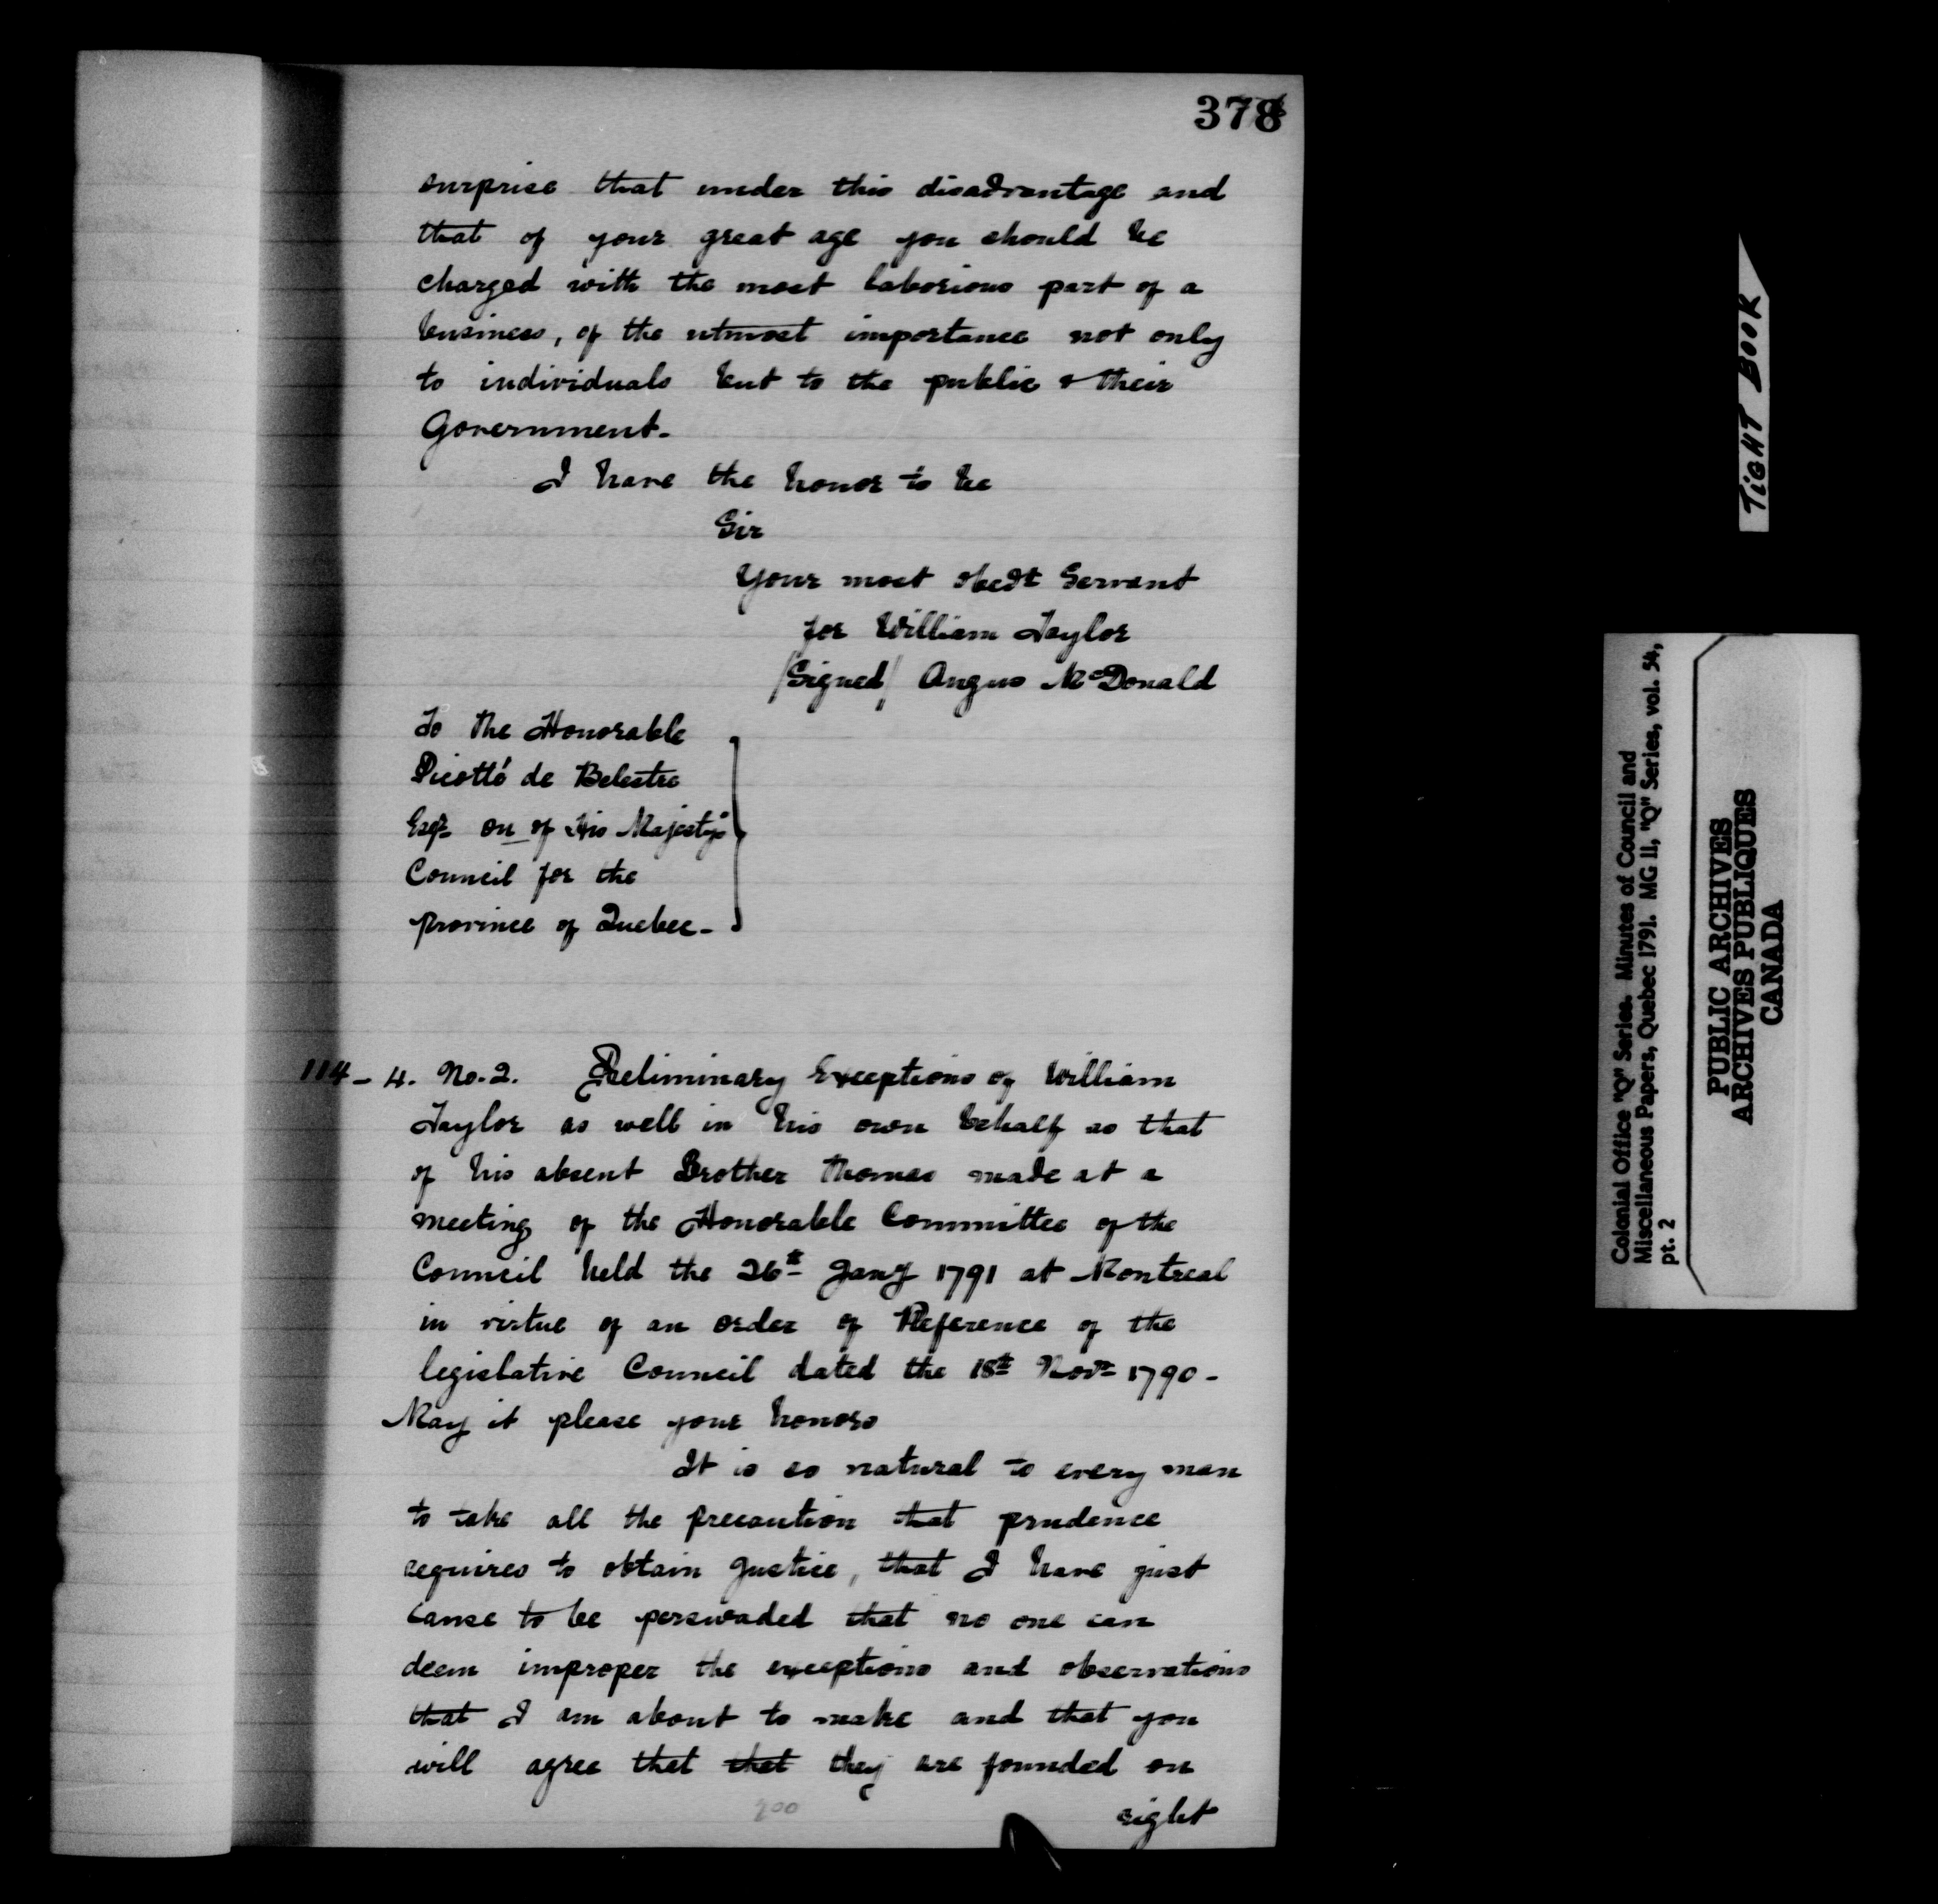 378
surprise that under this disadvantage and
that of your great age you should be
charged with the most laborious part of a
business, of the utmost importance not only
to individuals but to the public & their
Government.
I have the honor to be
Sir
Your most obedt Servant
for William Taylor
/Signed/ Angus McDonald
To the Honorable
Picotté de Belestre
Esqr on of His Majesty's
Council for the
province of Quebec.
114-4. No. 2. Preliminary Exceptions of William
Taylor as well in his own behalf as that
of his absent Brother Thomas made at a
meeting of the Honorable Committee of the
Council held the 26th Jany 1791 at Montreal
in virtue of an order of Reference of the
legislative Council dated the 18th Novr 1790-
May it please your honors
It is so natural to every man
to take all the precaution that prudence
requires to obtain Justice, that I have just
cause to be perswaded that no one can
deem improper the exceptions and observations
that I am about to make and that you
will agree that that they are founded on
right
200
TIGHT BOOK
Colonial Office "Q" Series. Minutes of Council and
Miscellaneous Papers, Quebec 1791. MG 11, "Q" Series, vol. 54,
pt. 2
PUBLIC ARCHIVES
ARCHIVES PUBLIQUES
CANADA